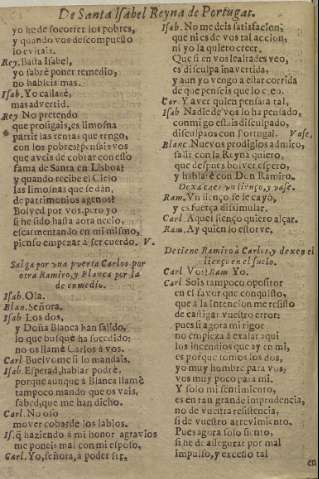 De Santa Isabel Reyna de Portugal.
yo he de socorrer los pobres,
y quando vos descompuesto
lo evitais.
Rey. Basta Isabel,
yo sabrè poner remedio,
no hableis mas.
Isab. Yo callarè,
mas advertid.
Rey No pretendo
que prosigais, es limosna
partir las rentas que tengo,
con los pobres; pensais vos
que aveis de cobrar con esso
fama de Santa en Lisboa?
y quando recibe el Cielo
las limosnas que se dàn,
de patrimonios agenos?
Bolved por vos, pero yo
si he sido hasta aora necio,
escarmentando en mi mismo,
pienso empezar à ser cuerdo. V.
Salga por una puerta Carlos, por
otra Ramiro, y Blanca por la
de enmedio.
Isab. Ola.
Blan. Señora.
Isab. Los dos,
y Doña Blanca han salido,
lo que busquè ha sucedido;
no os llamè Carlos à vos.
Carl. Bolverme si lo mandais.
Isab. Esperad, hablar podrè,
porque aunque à Blanca llamè
tampoco mando que os vais,
sabed, que me han dicho.
Carl. No oso
mover cobarde los labios.
Is. q̃ haziendo à mi honor agravios
me poneis mal con mi esposo.
Carl. Yo, señora, à poder ser,
Isab. No me deis satisfacion,
que ni es de vos tal accion,
ni yo la quiero creer.
Que si en vos lealtades veo,
es disculpa inavertida,
y aun yo vengo à estar corrida
de que penseis que lo creo.
Car. Y aver quien pensàra tal,
Isab Nadie de vos lo ha pensado,
conmigo estais disculpado,
disculpaos con Portugal. Vase.
Blanc. Nuevos prodigios admiro,
salir con la Reyna quiero,
que despues bolver espero,
y hablarè con Don Ramiro.
Dexa caer un lienço, y vase.
Ram. Un lienço se le cayo,
y es fuerça dissimular.
Carl. Aquel lienço quiero alçar.
Ram. Ay quien lo estorve.
Detiene Ramiro à Carlos, y dexen el
lienço en el suelo.
Carl Vos? Ram Yo.
Carl Sois tampoco opositor
en el favor que conquisto,
que à la intencion me resisto
de castigar vuestro error:
pues si agora mi rigor
no empieza à exalar aqui
los incendios que ay en mi,
es porque somos los dos,
yo mucho hombre para vos,
vos muy poco para mi.
Y solo mi sentimiento,
es en tan grande imprudencia,
no de vuestra resistencia,
si de vuestro atrevimiento.
Pues agora solo siento,
si he de assegurar por mal
impulso, y excesso tal
en